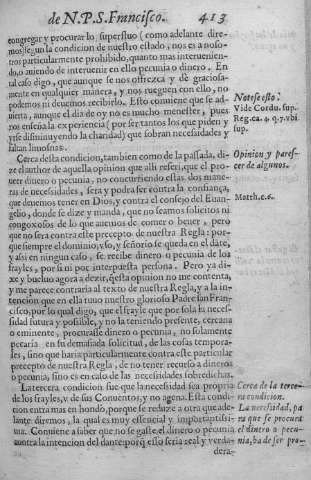 de N.P.S. Francisco. 413
congregar y procurar lo superfluo (como adelante dire-
mos) segun la condicion de nuestro estado, nos es a noso-
tros particularmente prohibido, quanto mas interuenien-
do, o auiendo de interuenir en ello pecunia o dinero. En
tal caso digo, que aunque se nos ofrezca y dè graciosa-
mente en qualquier manera, y nos rueguen con ello, no
podemos ni deuemos recibirlo. Esto conuiene que se ad-
uierta, aunque el dia de oy no es mucho menester, pues
nos enseña la experiencia (por ser tantos los que piden y
yrse disminuyendo la charidad) que sobran necessidades y
faltan limosnas.
Notese esto:
Vide Cordu. sup.
Reg. ca. 4. q. 7. vbi
sup.
Cerca desta condicion, tambien como de la passada, di-
ze el author de aquella opinion que alli referi, que el pro-
curer dinero o pecunia, no concurriendo estas dos mane-
ras de necessidades, sera y podra ser contra la confiança,
que deuemos tener en Dios, y contra el consejo del Euan-
gelio, donde se dize y manda, que no seamos solicitos ni
congoxosos de lo que auemos de comer o beuer, pero
que no sera contra este precepto de nuestra Regla: por-
que siempre el dominio, vso, y señorio se queda en el date,
y assi en ningun caso, se recibe dinero o pecunia de los
frayles, por si ni por interpuesta persona. Pero ya di-
xe y bueluo agora a dezir, questa opinion no me contenta,
y me parece contraria al texto de nuestra Regla, y a la in-
tencion que en ella tuuo nuestro glorioso Padre san Fran-
cisco, por lo qual digo, que el frayle que por sola la neces-
sidad futura y possible, y no la teniendo presente, cercana
o eminente, procurasse dinero o pecunia, no solamente
pecaria en su demasiada solicitud, de las cosas tempora-
les, sino que haria particularmente contra este particular
precepto de nuestra Regla, de no tener recurso a dineros
o pecunia, sino en caso de las necessidades sobredichas.
Opinion y pares-
cer de algunos.
Matth. c. 6.
La tercera condicion sue que la necessidad sea propria
de los frayles, y de sus Conuentos, y no agena. Esta condi-
cion entra mas en hondo, porque se reduze a otra que ade-
lante diremos, la qual es muy essencial y importantissi-
ma. Conuiene a saber que no se gaste el dinero o pecunia
contra la intencion del dante: porq̃ esso seria real y verda-
dera-
Cerca de la terce-
ra condicion.
La necessidad, pa
ra que se procura
el dinero o pecu-
nia, ha de ser pro-